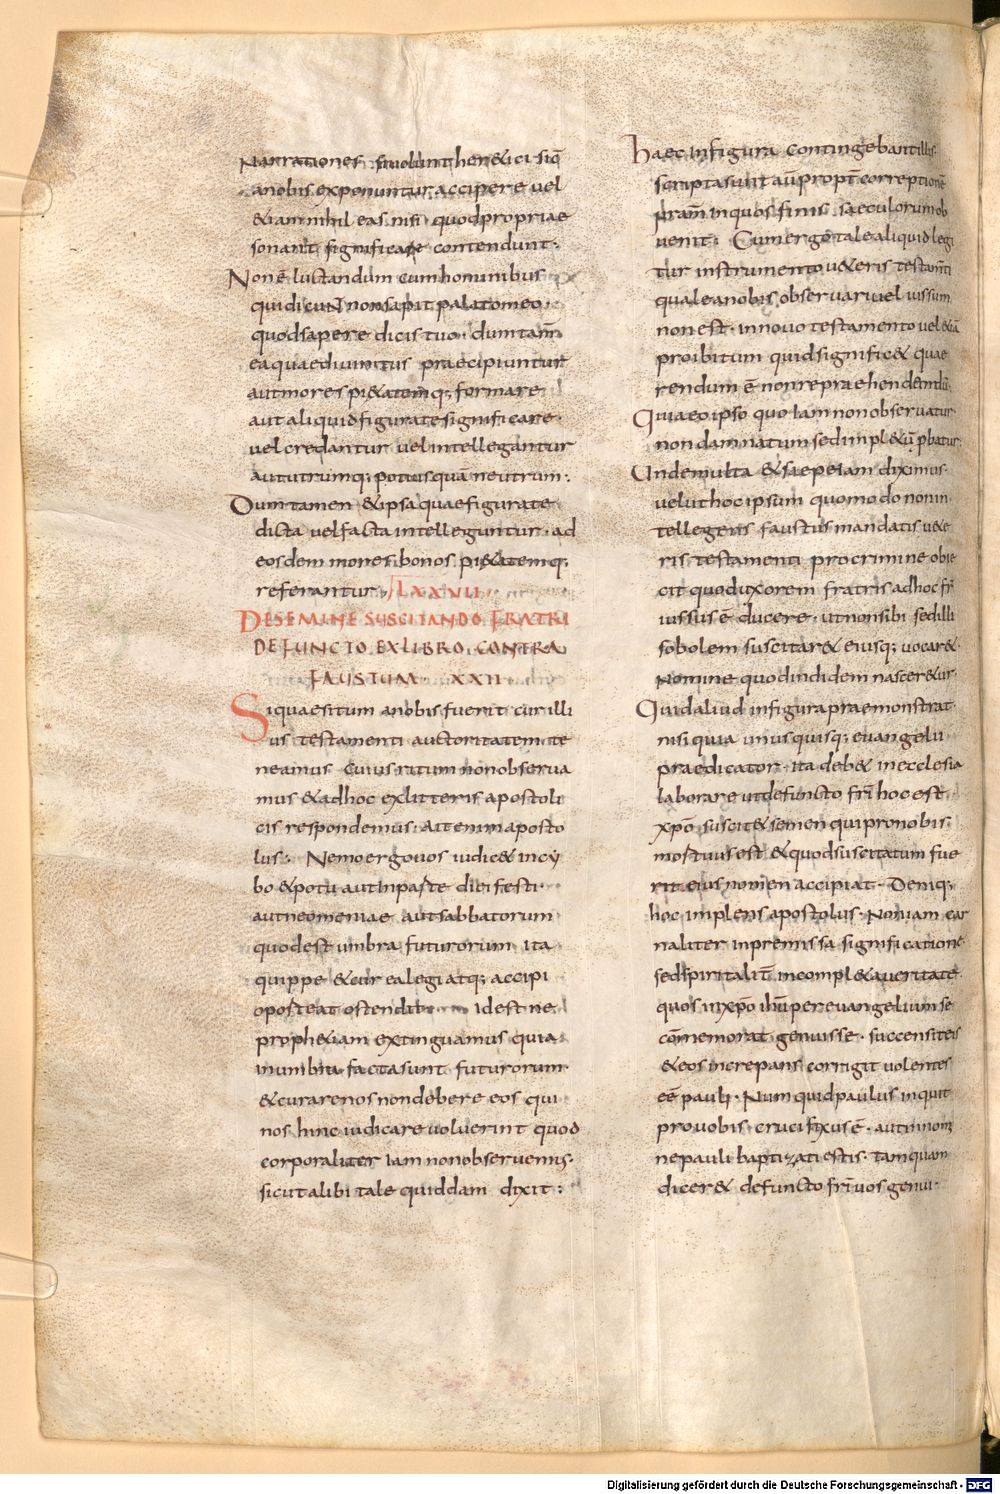 Narrationes. si nolunt heretici siq̄
a nobis exponuntur accipere vel
etiam nihil eas nisi quod propriae
sonant significare contendunt.
Non ē luctandum cum hominibus
qui dicunt non sapit palato meo.
quod sapere dicis tuo. dum tam̄
ea quae divinitus praecipiuntur
aut mores pietatemq; formare
aut aliquid figurate significare.
vel credantur vel intellegantur
aut utrumq; potius quā neutrum.
Dum tamen et ipsa quae figurate
dicta vel facta intelleguntur. ad
eosdem mores bonos pietatemq;
referantur. LXXVII
DE SEMINE SUSCITANDO FRATRI
DEFUNCTO EX LIBRO CONTRA
FAUSTUM XXII
Si quaesitum a nobis fuerit cur illi
us testamenti auctoritatem te
neamus cuius ritum non observa
mus et ad hoc ex litteris apostoli
cis respondemus. Ait enim aposto
lus. Nemo ergo vos iudicet in cy
bo et potu aut in parte diei festi.
aut neomeniae aut sabbatorum
quod est umbra futurorum ita
quippe et cur ea legi atq; accipi
oporteat ostendit id est ne
prophetiam extinguamus quia
in umbra facta sunt futurorum.
et curare nos non debere eos qui
nos hinc iudicare voluerint quod
corporaliter iam non observemus.
sicut alibi tale quiddam dixit:
Haec in figura contingebant illis
scripta sunt aū propt̄ correptionē
n̄ram in quos finis saeculorum ob
venit. Cum ergo tale aliquid legi
tur instrumento veteris testam̄ti
quale a nobis observari vel iussum
non est. in novo testamento vel etiā
proibitum quid significet quae
rendum ē non reprae hendendū.
Quia eo ipso quo iam non observatur
non damnatum sed impletū pbatur.
Unde multa et saepe iam diximus.
velut hoc ipsum quomodo non in
tellegens faustus mandatis vete
ris testamenti pro crimine obie
cit quod uxorem fratris ad hoc fr̄
iussus ē ducere. ut non sibi sed illi
sobolem suscitaret eiusq; vocaret
nomine quod inde idem nasceretur.
Quid aliud in figura praemonstrat.
nisi quia unusquisq; evangelii
praedicator. ita debet in ecclesia
laborare ut defuncto fr̄i hoc est
xp̄o suscitet semen qui pro nobis
mortuus est et quod suscitatum fue
rit eius nomen accipiat. Deniq;
hoc implens apostolus. Non iam car
naliter in premissa significatione
sed spiritalit̄ in completa veritate
quos in xp̄o ihū per evangelium se
cōmemorat genuisse. succenset eis
et eos increpans corrigit volentes
eē pauli. Numquid paulus inquit
pro vobis crucifixus ē. aut in nom̄
ne pauli baptizati estis. tamquam
diceret defuncto fr̄i vos genui.
Digitalisierung gefördert durch die Deutsche Forschungsgemeinschaft - DFG